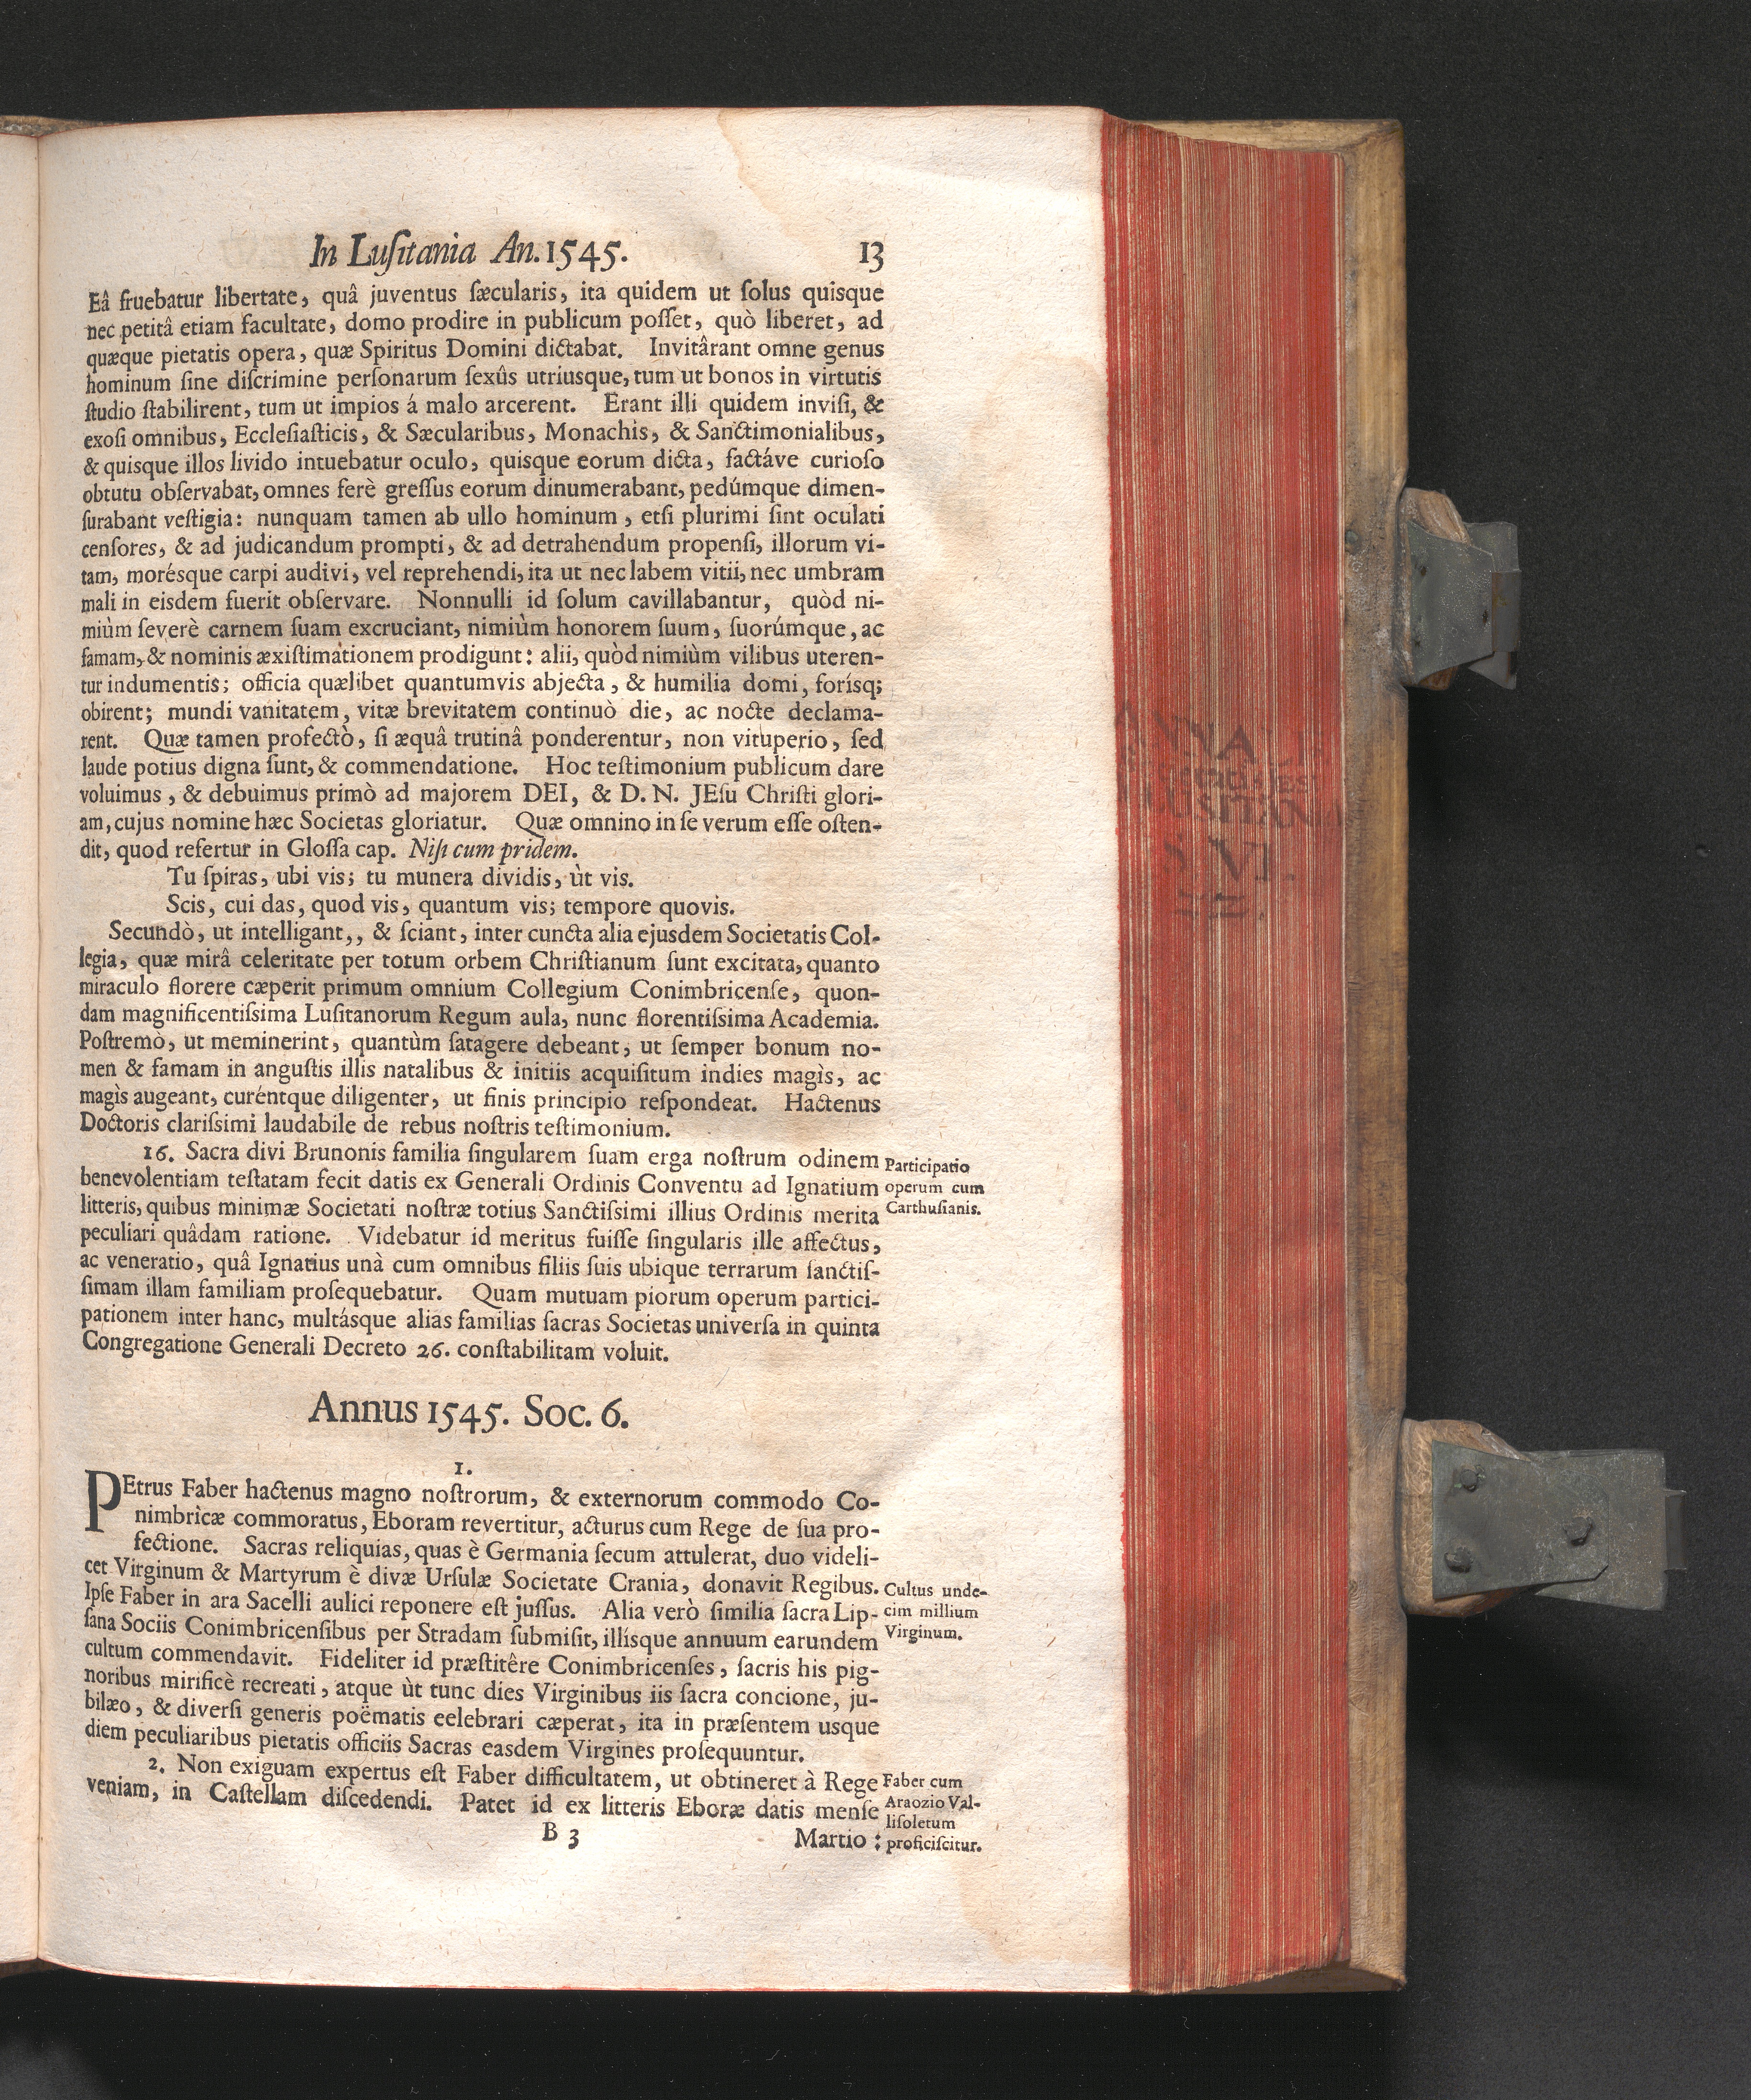 In Luſitania An. 1545. 13
Eâ fruebatur libertate, quâ juventus ſæcularis, ita quidem ut ſolus quisque
nec petitâ etiam facultate, domo prodire in publicum poſſet, quò liberet, ad
quæque pietatis opera, quæ Spiritus Domini dictabat. Invitârant omne genus
hominum ſine diſcrimine perſonarum ſexûs utriusque, tum ut bonos in virtutis
ſtudio ſtabilirent, tum ut impios á malo arcerent. Erant illi quidem inviſi, &
exoſi omnibus, Eccleſiaſticis, & Sæcularibus, Monachis, & Sanctimonialibus,
& quisque illos livido intuebatur oculo, quisque eorum dicta, factáve curioſo
obtutu obſervabat, omnes ferè greſſus eorum dinumerabant, pedúmque dimen-
ſurabant veſtigia: nunquam tamen ab ullo hominum, etſi plurimi ſint oculati
cenſores, & ad judicandum prompti, & ad detrahendum propenſi, illorum vi-
tam, morésque carpi audivi, vel reprehendi, ita ut nec labem vitii, nec umbram
mali in eisdem fuerit obſervare. Nonnulli id ſolum cavillabantur, quòd ni-
miùm ſeverè carnem ſuam excruciant, nimiùm honorem ſuum, ſuorúmque, ac
famam, & nominis æxiſtimationem prodigunt: alii, quòd nimiùm vilibus uteren-
tur indumentis; officia quælibet quantumvis abjecta, & humilia domi, forísq;
obirent; mundi vanitatem, vitæ brevitatem continuò die, ac nocte declama-
rent. Quæ tamen profectò, ſi æquâ trutinâ ponderentur, non vituperio, ſed
laude potius digna ſunt, & commendatione. Hoc teſtimonium publicum dare
voluimus, & debuimus primò ad majorem DEI, & D. N. JEſu Chriſti glori-
am, cujus nomine hæc Societas gloriatur. Quæ omnino in ſe verum eſſe oſten-
dit, quod refertur in Gloſſa cap. Niſi cum pridem.
Tu ſpiras, ubi vis; tu munera dividis, ùt vis.
Scis, cui das, quod vis, quantum vis; tempore quovis.
Secundò, ut intelligant,, & ſciant, inter cuncta alia ejusdem Societatis Col-
legia, quæ mirâ celeritate per totum orbem Chriſtianum ſunt excitata, quanto
miraculo florere cæperit primum omnium Collegium Conimbricenſe, quon-
dam magnificentiſsima Luſitanorum Regum aula, nunc florentiſsima Academia.
Poſtremò, ut meminerint, quantùm ſatagere debeant, ut ſemper bonum no-
men & famam in anguſtis illis natalibus & initiis acquiſitum indies magìs, ac
magìs augeant, curéntque diligenter, ut finis principio reſpondeat. Hactenus
Doctoris clariſsimi laudabile de rebus noſtris teſtimonium.
16. Sacra divi Brunonis familia ſingularem ſuam erga noſtrum odinem
benevolentiam teſtatam fecit datis ex Generali Ordinis Conventu ad Ignatium
litteris, quibus minimæ Societati noſtræ totius Sanctiſsimi illius Ordinis merita
peculiari quâdam ratione. Videbatur id meritus fuiſſe ſingularis ille affectus,
ac veneratio, quâ Ignatius unà cum omnibus filiis ſuis ubique terrarum ſanctiſ-
ſimam illam familiam proſequebatur. Quam mutuam piorum operum partici-
pationem inter hanc, multásque alias familias ſacras Societas univerſa in quinta
Congregatione Generali Decreto 26. conſtabilitam voluit.
Participatio
operum cum
Carthuſianis.
Annus 1545. Soc. 6.
1.
PEtrus Faber hactenus magno noſtrorum, & externorum commodo Co-
nimbricæ commoratus, Eboram revertitur, acturus cum Rege de ſua pro-
fectione. Sacras reliquias, quas è Germania ſecum attulerat, duo videli-
cet Virginum & Martyrum è divæ Urſulæ Societate Crania, donavit Regibus.
Ipſe Faber in ara Sacelli aulici reponere eſt juſſus. Alia verò ſimilia ſacra Lip-
ſana Sociis Conimbricenſibus per Stradam ſubmiſit, illísque annuum earundem
cultum commendavit. Fideliter id præſtitêre Conimbricenſes, ſacris his pig-
noribus mirificè recreati, atque ùt tunc dies Virginibus iis ſacra concione, ju-
bilæo, & diverſi generis poëmatis celebrari cæperat, ita in præſentem usque
diem peculiaribus pietatis officiis Sacras easdem Virgines proſequuntur.
Cultus unde-
cim millium
Virginum.
2. Non exiguam expertus eſt Faber difficultatem, ut obtineret à Rege
veniam, in Caſtellam diſcedendi. Patet id ex litteris Eboræ datis menſe
Faber cum
Araozio Val-
liſoletum
proficiſcitur.
B 3 Martio: